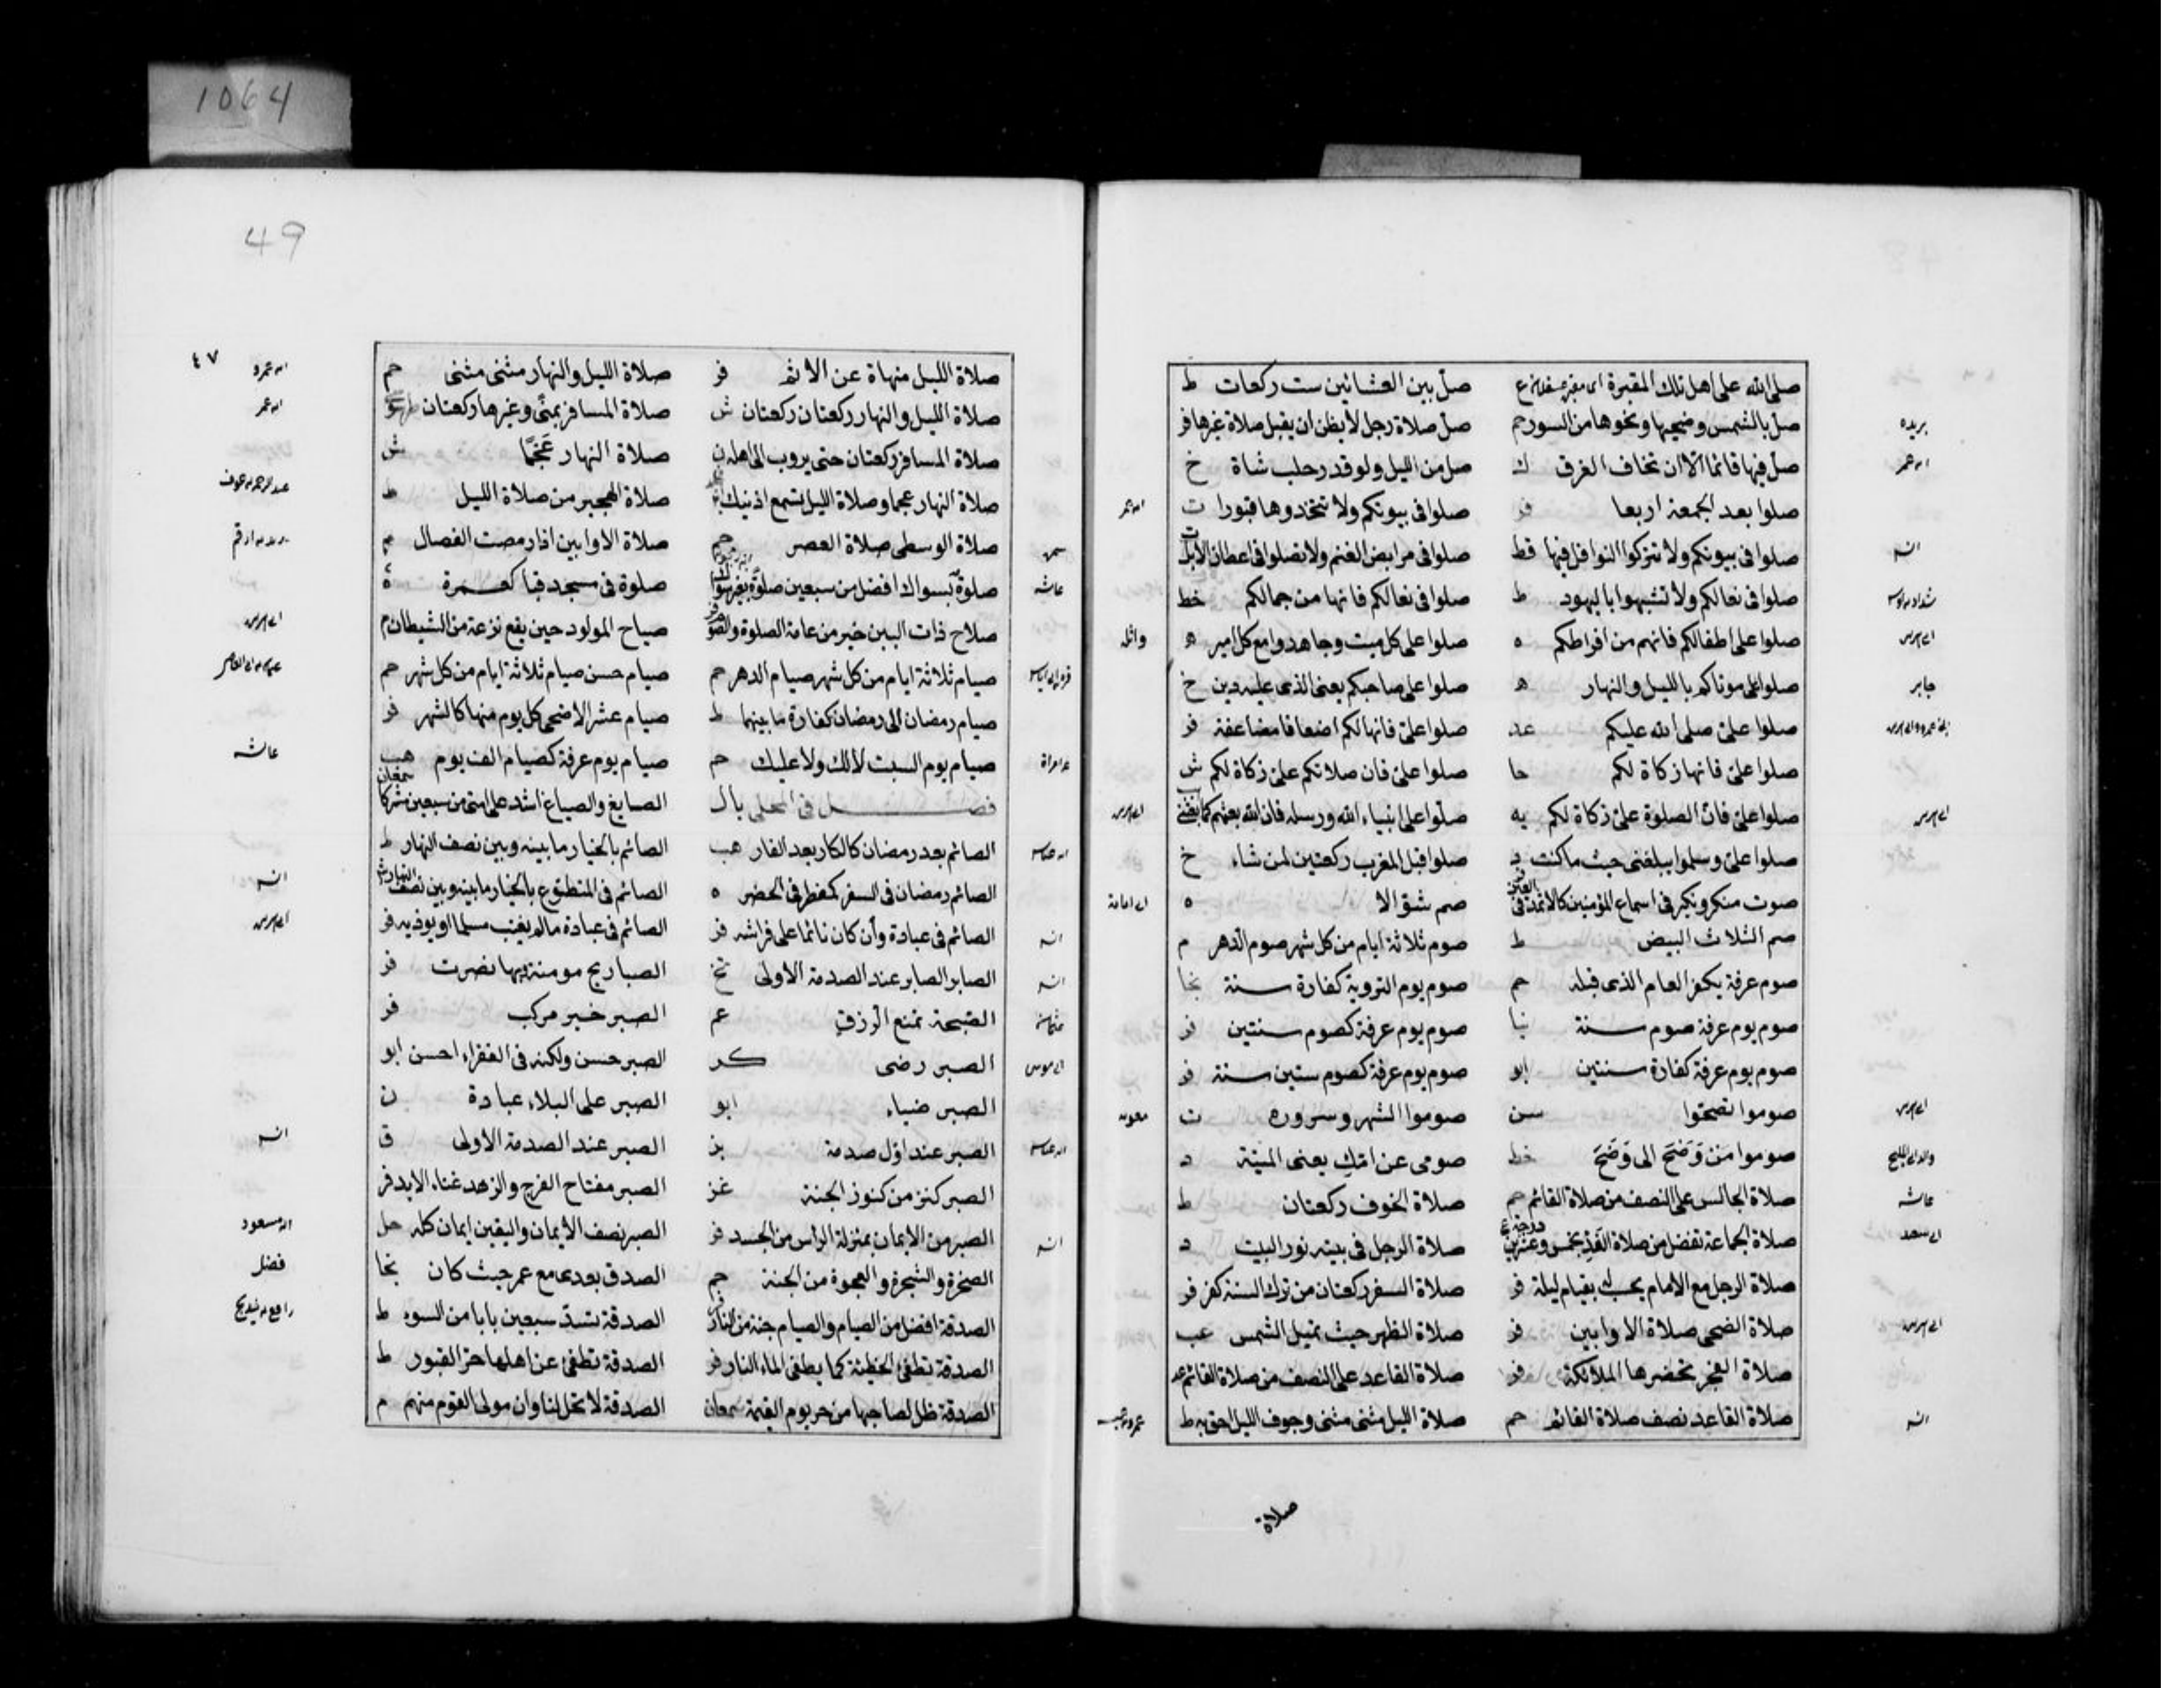 1064
49
٤٧
صلى الله على اهل تلك المقبرة ع صل بين العشائين ست ركعات ط
بريده صل بالشمس وضحيها ونحوها من السور حم صل صلاة رجل لا يظن ان يقبل صلاة غيرها فر
صل فيها قائما الا ان تخاف الغرق ك صل من الليل ولو قدر حلب شاة خ
صلوا بعد الجمعة اربعا فر صلوا فى بيوتكم ولا تتخذوها قبورا ت
صلوا فى بيوتكم ولا تتركوا النوافل فيها قط صلوا فى مرابض الغنم ولا تصلوا فى اعطان الابل ت
صلوا فى نعالكم ولا تشبهوا باليهود ط صلوا فى نعالكم فانها من جمالكم خط
صلوا على اطفالكم فانهم من افراطكم ه صلوا على كل ميت وجاهدوا مع كل امير ه
جابر صلوا على موتاكم بالليل والنهار ه صلوا على صاحبكم يعنى الذى عليه دين خ
صلوا على صلى الله عليكم عد صلوا على فانها لكم اضعافا مضاعفة فر
صلوا على فانها زكاة لكم حا صلوا على فان صلاتكم على زكاة لكم ش
صلوا على فان الصلوة على زكاة لكم يه صلوا على انبياء الله ورسله فان الله بعثهم كما بعثنى
صلوا على وسلموا يبلغنى حيث ما كنت د صلوا قبل المغرب ركعتين لمن شاء خ
صوت منكر ونكير فى اسماع المؤمنين كالاثمد فى العين صم شوالا ه
صم الثلاث البيض ط صوم ثلاثة ايام من كل شهر صوم الدهر م
صوم عرفة يكفر العام الذى قبله حم صوم يوم التروية كفارة سنة نجا
صوم يوم عرفة صوم سنة صوم يوم عرفة كصوم سنتين فر
صوم يوم عرفة كفارة سنتين ابو صوم يوم عرفة كصوم ستين سنة فر
صوموا تصحوا سن صوموا الشهر وسروره ت
صوموا من وَضَحَ الى وَضَحَ خط صومى عن امك يعنى الميتة د
عائشه صلاة الجالس على النصف من صلاة القائم حم صلاة الخوف ركعتان ط
صلاة الجماعة تفضل من صلاة الفذ بخمس وعشرين درجة ع صلاة الرجل فى بيته نور البيت د
صلاة الرجل مع الامام يحسب له بقيام ليلة فر صلاة السفر ركعتان من ترك السنة كفر فر
صلاة الضحى صلاة الاوابين فر صلاة الظهر حيث تميل الشمس عب
صلاة الفجر تحضرها الملائكة فر صلاة القاعد على النصف من صلاة القائم عد
صلاة القاعد نصف صلاة القائم حم صلاة الليل مثنى مثنى وجوف الليل احق به ط
صلاة
صلاة الليل منهاة عن الاثم فر صلاة الليل والنهار مثنى مثنى حم
صلاة الليل والنهار ركعتان ركعتان ش صلاة المسافر بمنى وغيرها ركعتان
صلاة المسافر ركعتان حتى يروب الى اهله صلاة النهار عَجْمًا ش
صلاة النهار عجما وصلاة الليل تسمع اذنيك صلاة الهجير من صلاة الليل ط
صلاة الوسطى صلاة العصر حم صلاة الاوابين اذا رمضت الفصال م
عائشه صلوة بسواك افضل من سبعين صلوة بغير سواك صلوة فى مسجد قبا كعمرة ة
صلاح ذات البين خير من عامة الصلوة والصوم فر صياح المولود حين يقع نزعة من الشيطان م
صيام ثلاثة ايام من كل شهر صيام الدهر حم صيام حسن صيام ثلاثة ايام من كل شهر حم
صيام رمضان الى رمضان كفارة ما بينهما ط صيام عشر الاضحى كل يوم منها كالشهر فر
صيام يوم السبت لا لك ولا عليك حم صيام يوم عرفة كصيام الف يوم هب عائشه
فصل فى المحلى بال الصايغ والصباغ اشد على امتى من سبعين شركا سمعان
الصائم بعد رمضان كالكار بعد الفار هب الصائم بالخيار ما بينه وبين نصف النهار ط
الصائم رمضان فى السفر كمفطر فى الحضر ه الصائم فى المتطوع بالخيار ما بينه وبين نصف النهار
الصائم فى عبادة وأن كان نائما على فراشه فر الصائم فى عبادة ما لم يغتب مسلما او يوذيه فر
الصابر الصابر عند الصدمة الاولى تخ فر
الصبحة تمنع الرزق عم الصبر خير مركب فر
الصبر رضى كر الصبر حسن ولكنه فى الفقراء احسن ابو
الصبر ضياء ابو الصبر على البلاء عبادة ن
الصبر عند اول صدمة بز الصبر عند الصدمة الاولى ق
الصبر كنز من كنوز الجنة غز الصبر مفتاح الفرج والزهد غناء الابد فر
الصبر من الايمان بمنزلة الرأس من الجسد فر الصبر نصف الايمان واليقين ايمان كله حل
الصخرة والشجرة والعجوة من الجنة حم الصدق بعدى مع عمر حيث كان نجا فضل
الصدقة افضل من الصيام والصيام جنة من النار فر الصدقة تسد سبعين بابا من السوء ط
الصدقة تطفئ الخطيئة كما يطفى الماء النار فر الصدقة تطفئ عن اهلها حر القبور ط
الصدقة ظل لصاحبها من حر يوم القيمة سمعان الصدقة لا تحل لنا وان مولى القوم منهم م